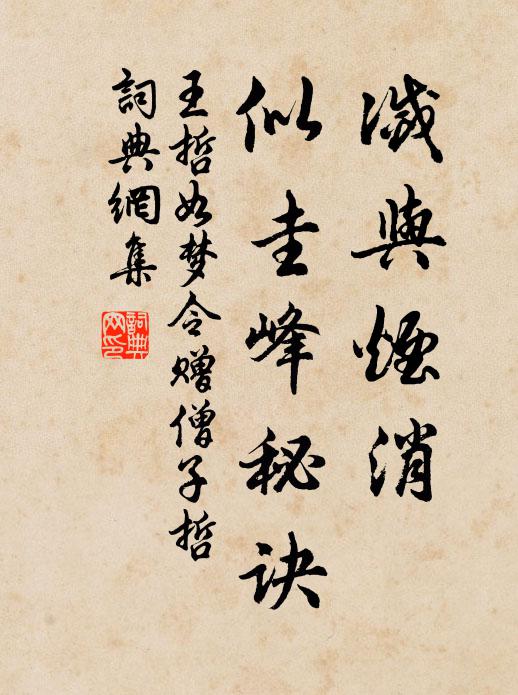 滅與煙消
似圭峰秘訣
王哲如梦令赠僧子哲
詞典網集
詞典网印